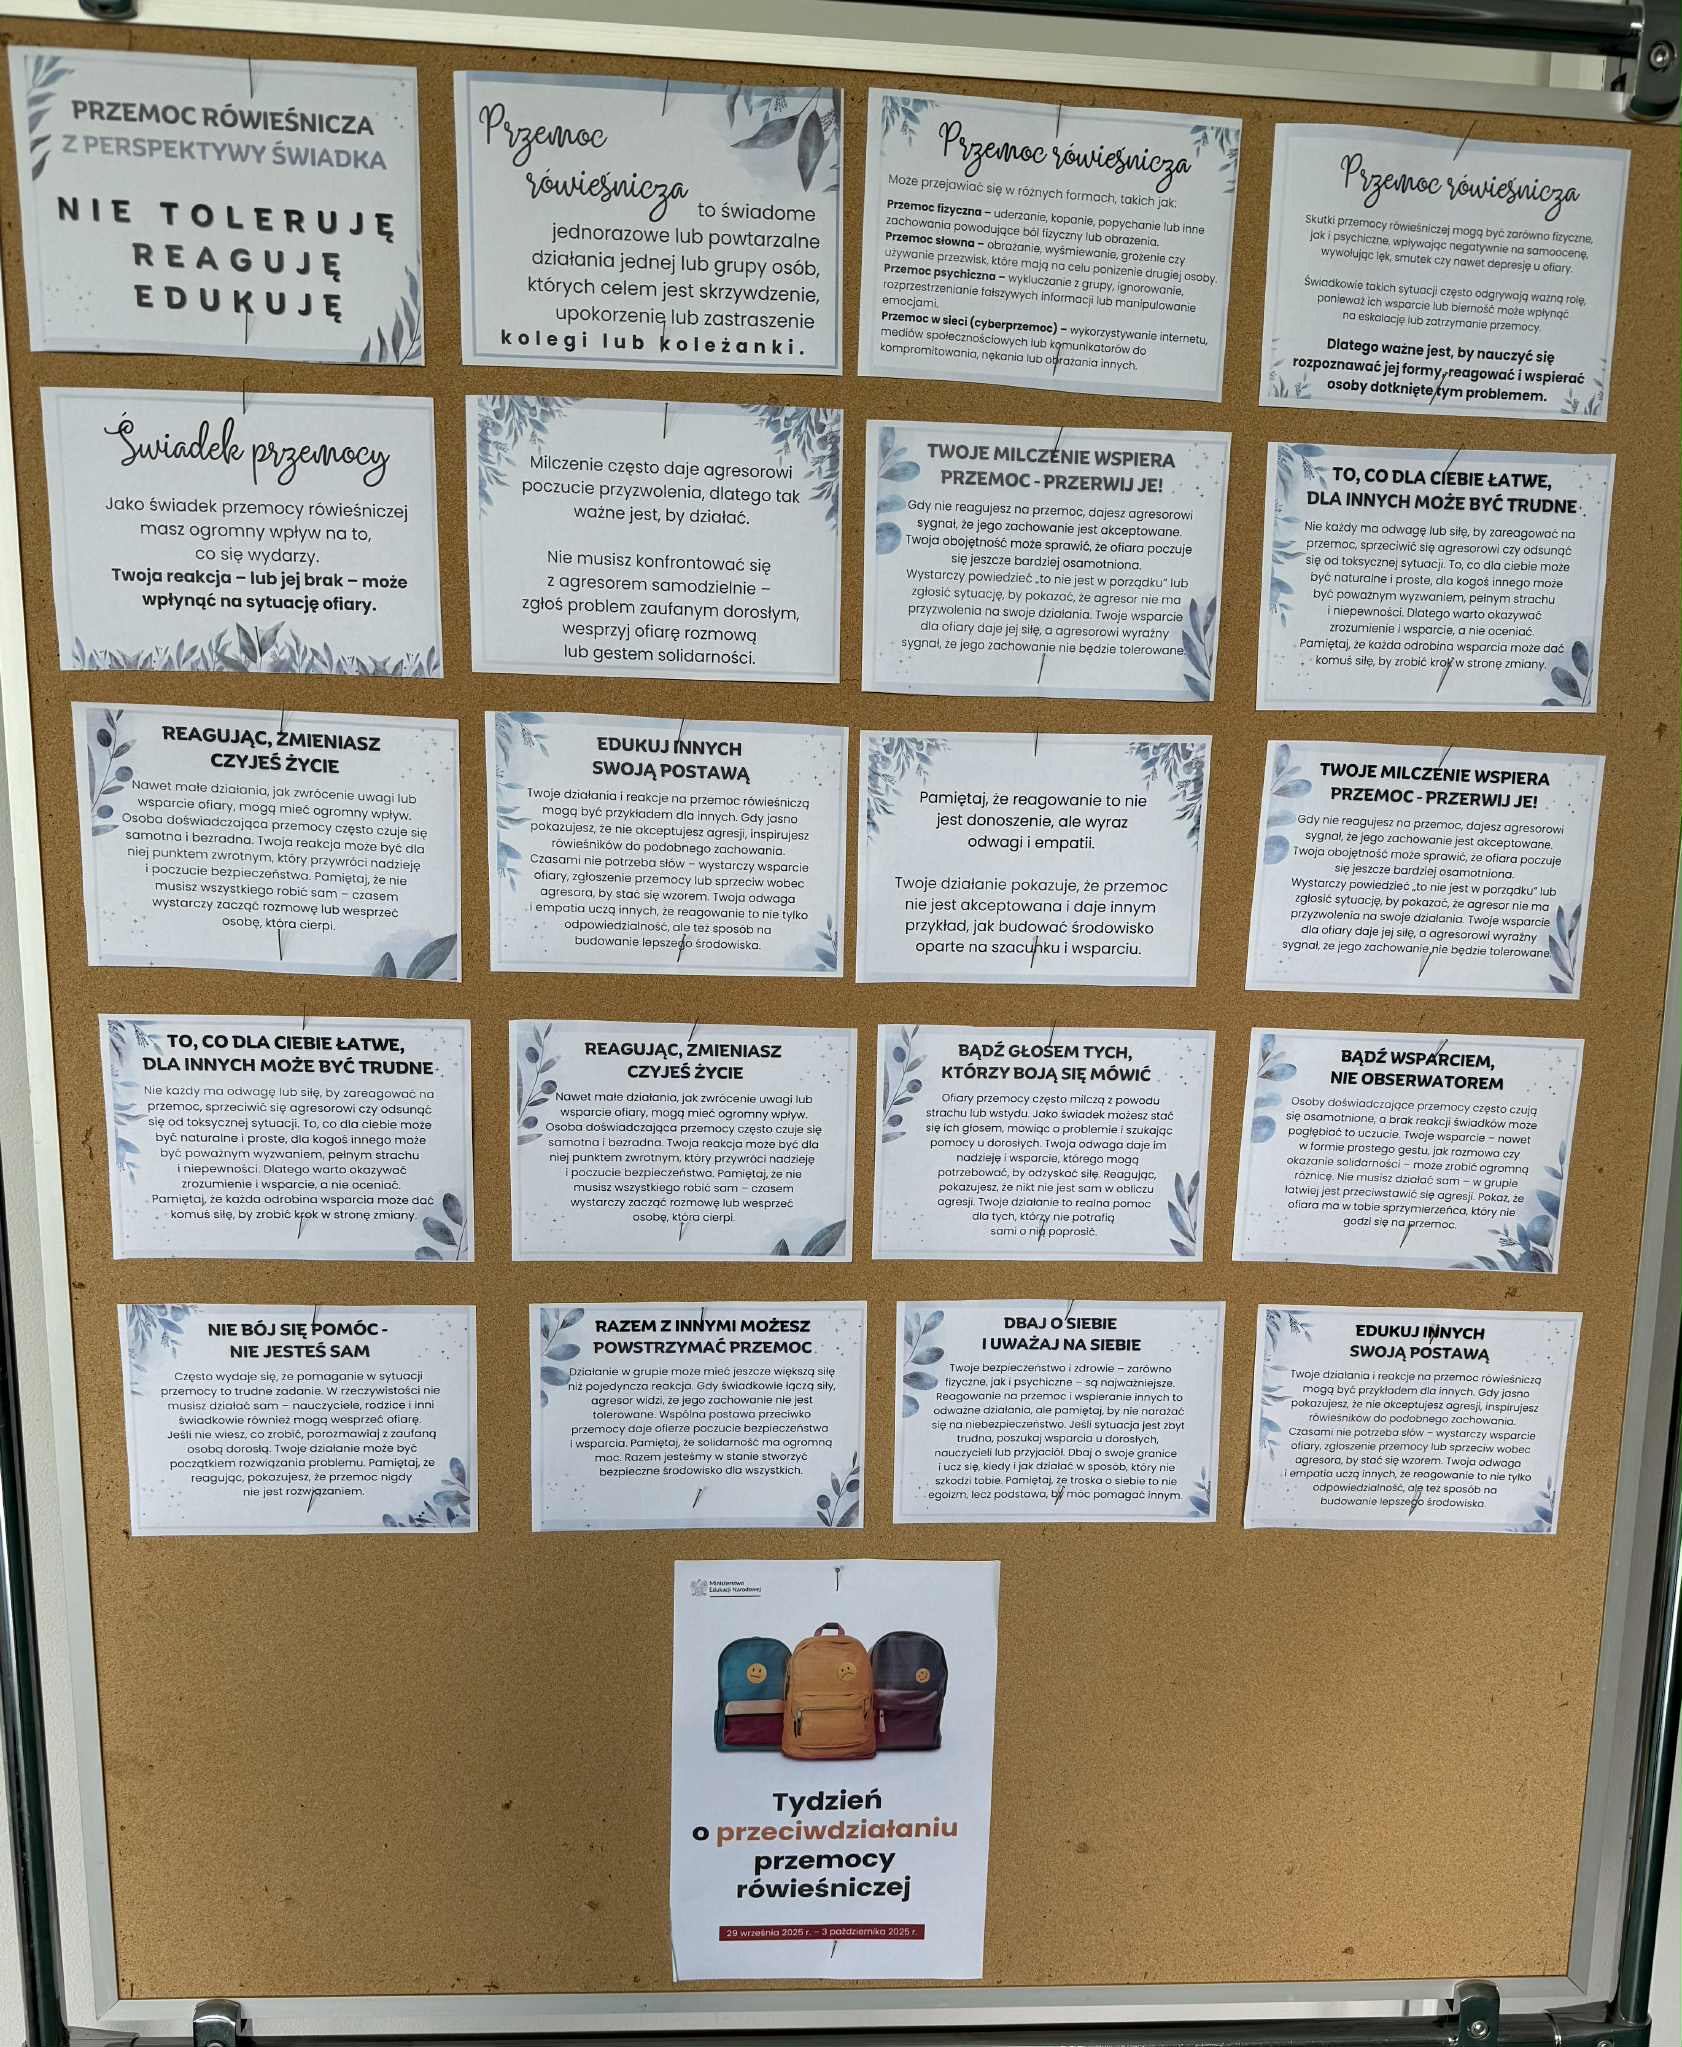 PRZEMOC RÓWIEŚNICZA
Z PERSPEKTYWY ŚWIADKA
NIE TOLERUJĘ
REAGUJĘ
EDUKUJĘ
Przemoc
rówieśnicza to świadome
jednorazowe lub powtarzalne
działania jednej lub grupy osób,
których celem jest skrzywdzenie,
upokorzenie lub zastraszenie
kolegi lub koleżanki.
Przemoc rówieśnicza
Może przejawiać się w różnych formach, takich jak:
Przemoc fizyczna – uderzanie, kopanie, popychanie lub inne
zachowania powodujące ból fizyczny lub obrażenia.
Przemoc słowna – obrażanie, wyśmiewanie, grożenie czy
używanie przezwisk, które mają na celu poniżenie drugiej osoby.
Przemoc psychiczna – wykluczanie z grupy, ignorowanie,
rozprzestrzenianie fałszywych informacji lub manipulowanie
emocjami.
Przemoc w sieci (cyberprzemoc) – wykorzystywanie internetu,
mediów społecznościowych lub komunikatorów do
kompromitowania, nękania lub obrażania innych.
Przemoc rówieśnicza
Skutki przemocy rówieśniczej mogą być zarówno fizyczne,
jak i psychiczne, wpływając negatywnie na samoocenę,
wywołując lęk, smutek czy nawet depresję u ofiary.
Świadkowie takich sytuacji często odgrywają ważną rolę,
ponieważ ich wsparcie lub bierność może wpłynąć
na eskalację lub zatrzymanie przemocy.
Dlatego ważne jest, by nauczyć się
rozpoznawać jej formy, reagować i wspierać
osoby dotknięte tym problemem.
Świadek przemocy
Jako świadek przemocy rówieśniczej
masz ogromny wpływ na to,
co się wydarzy.
Twoja reakcja – lub jej brak – może
wpłynąć na sytuację ofiary.
Milczenie często daje agresorowi
poczucie przyzwolenia, dlatego tak
ważne jest, by działać.
Nie musisz konfrontować się
z agresorem samodzielnie –
zgłoś problem zaufanym dorosłym,
wesprzyj ofiarę rozmową
lub gestem solidarności.
TWOJE MILCZENIE WSPIERA
PRZEMOC - PRZERWIJ JE!
Gdy nie reagujesz na przemoc, dajesz agresorowi
sygnał, że jego zachowanie jest akceptowane.
Twoja obojętność może sprawić, że ofiara poczuje
się jeszcze bardziej osamotniona.
Wystarczy powiedzieć „to nie jest w porządku” lub
zgłosić sytuację, by pokazać, że agresor nie ma
przyzwolenia na swoje działania. Twoje wsparcie
dla ofiary daje jej siłę, a agresorowi wyraźny
sygnał, że jego zachowanie nie będzie tolerowane.
TO, CO DLA CIEBIE ŁATWE,
DLA INNYCH MOŻE BYĆ TRUDNE
Nie każdy ma odwagę lub siłę, by zareagować na
przemoc, sprzeciwić się agresorowi czy odsunąć
się od toksycznej sytuacji. To, co dla ciebie może
być naturalne i proste, dla kogoś innego może
być poważnym wyzwaniem, pełnym strachu
i niepewności. Dlatego warto okazywać
zrozumienie i wsparcie, a nie oceniać.
Pamiętaj, że każda odrobina wsparcia może dać
komuś siłę, by zrobić krok w stronę zmiany.
REAGUJĄC, ZMIENIASZ
CZYJEŚ ŻYCIE
Nawet małe działania, jak zwrócenie uwagi lub
wsparcie ofiary, mogą mieć ogromny wpływ.
Osoba doświadczająca przemocy często czuje się
samotna i bezradna. Twoja reakcja może być dla
niej punktem zwrotnym, który przywróci nadzieję
i poczucie bezpieczeństwa. Pamiętaj, że nie
musisz wszystkiego robić sam – czasem
wystarczy zacząć rozmowę lub wesprzeć
osobę, która cierpi.
EDUKUJ INNYCH
SWOJĄ POSTAWĄ
Twoje działania i reakcje na przemoc rówieśniczą
mogą być przykładem dla innych. Gdy jasno
pokazujesz, że nie akceptujesz agresji, inspirujesz
rówieśników do podobnego zachowania.
Czasami nie potrzeba słów – wystarczy wsparcie
ofiary, zgłoszenie przemocy lub sprzeciw wobec
agresora, by stać się wzorem. Twoja odwaga
i empatia uczą innych, że reagowanie to nie tylko
odpowiedzialność, ale też sposób na
budowanie lepszego środowiska.
Pamiętaj, że reagowanie to nie
jest donoszenie, ale wyraz
odwagi i empatii.
Twoje działanie pokazuje, że przemoc
nie jest akceptowana i daje innym
przykład, jak budować środowisko
oparte na szacunku i wsparciu.
TWOJE MILCZENIE WSPIERA
PRZEMOC - PRZERWIJ JE!
Gdy nie reagujesz na przemoc, dajesz agresorowi
sygnał, że jego zachowanie jest akceptowane.
Twoja obojętność może sprawić, że ofiara poczuje
się jeszcze bardziej osamotniona.
Wystarczy powiedzieć „to nie jest w porządku” lub
zgłosić sytuację, by pokazać, że agresor nie ma
przyzwolenia na swoje działania. Twoje wsparcie
dla ofiary daje jej siłę, a agresorowi wyraźny
sygnał, że jego zachowanie nie będzie tolerowane.
TO, CO DLA CIEBIE ŁATWE,
DLA INNYCH MOŻE BYĆ TRUDNE
Nie każdy ma odwagę lub siłę, by zareagować na
przemoc, sprzeciwić się agresorowi czy odsunąć
się od toksycznej sytuacji. To, co dla ciebie może
być naturalne i proste, dla kogoś innego może
być poważnym wyzwaniem, pełnym strachu
i niepewności. Dlatego warto okazywać
zrozumienie i wsparcie, a nie oceniać.
Pamiętaj, że każda odrobina wsparcia może dać
komuś siłę, by zrobić krok w stronę zmiany.
REAGUJĄC, ZMIENIASZ
CZYJEŚ ŻYCIE
Nawet małe działania, jak zwrócenie uwagi lub
wsparcie ofiary, mogą mieć ogromny wpływ.
Osoba doświadczająca przemocy często czuje się
samotna i bezradna. Twoja reakcja może być dla
niej punktem zwrotnym, który przywróci nadzieję
i poczucie bezpieczeństwa. Pamiętaj, że nie
musisz wszystkiego robić sam – czasem
wystarczy zacząć rozmowę lub wesprzeć
osobę, która cierpi.
BĄDŹ GŁOSEM TYCH,
KTÓRZY BOJĄ SIĘ MÓWIĆ
Ofiary przemocy często milczą z powodu
strachu lub wstydu. Jako świadek możesz stać
się ich głosem, mówiąc o problemie i szukając
pomocy u dorosłych. Twoja odwaga daje im
nadzieję i wsparcie, którego mogą
potrzebować, by odzyskać siłę. Reagując,
pokazujesz, że nikt nie jest sam w obliczu
agresji. Twoje działanie to realna pomoc
dla tych, którzy nie potrafią
sami o nią poprosić.
BĄDŹ WSPARCIEM,
NIE OBSERWATOREM
Osoby doświadczające przemocy często czują
się osamotnione, a brak reakcji świadków może
pogłębiać to uczucie. Twoje wsparcie – nawet
w formie prostego gestu, jak rozmowa czy
okazanie solidarności – może zrobić ogromną
różnicę. Nie musisz działać sam – w grupie
łatwiej jest przeciwstawić się agresji. Pokaż, że
ofiara ma w tobie sprzymierzeńca, który nie
godzi się na przemoc.
NIE BÓJ SIĘ POMÓC -
NIE JESTEŚ SAM
Często wydaje się, że pomaganie w sytuacji
przemocy to trudne zadanie. W rzeczywistości nie
musisz działać sam – nauczyciele, rodzice i inni
świadkowie również mogą wesprzeć ofiarę.
Jeśli nie wiesz, co zrobić, porozmawiaj z zaufaną
osobą dorosłą. Twoje działanie może być
początkiem rozwiązania problemu. Pamiętaj, że
reagując, pokazujesz, że przemoc nigdy
nie jest rozwiązaniem.
RAZEM Z INNYMI MOŻESZ
POWSTRZYMAĆ PRZEMOC
Działanie w grupie może mieć jeszcze większą siłę
niż pojedyncza reakcja. Gdy świadkowie łączą siły,
agresor widzi, że jego zachowanie nie jest
tolerowane. Wspólna postawa przeciwko
przemocy daje ofierze poczucie bezpieczeństwa
i wsparcia. Pamiętaj, że solidarność ma ogromną
moc. Razem jesteśmy w stanie stworzyć
bezpieczne środowisko dla wszystkich.
DBAJ O SIEBIE
I UWAŻAJ NA SIEBIE
Twoje bezpieczeństwo i zdrowie – zarówno
fizyczne, jak i psychiczne – są najważniejsze.
Reagowanie na przemoc i wspieranie innych to
odważne działania, ale pamiętaj, by nie narażać
się na niebezpieczeństwo. Jeśli sytuacja jest zbyt
trudna, poszukaj wsparcia u dorosłych,
nauczycieli lub przyjaciół. Dbaj o swoje granice
i ucz się, kiedy i jak działać w sposób, który nie
szkodzi tobie. Pamiętaj, że troska o siebie to nie
egoizm, lecz podstawa, by móc pomagać innym.
EDUKUJ INNYCH
SWOJĄ POSTAWĄ
Twoje działania i reakcje na przemoc rówieśniczą
mogą być przykładem dla innych. Gdy jasno
pokazujesz, że nie akceptujesz agresji, inspirujesz
rówieśników do podobnego zachowania.
Czasami nie potrzeba słów – wystarczy wsparcie
ofiary, zgłoszenie przemocy lub sprzeciw wobec
agresora, by stać się wzorem. Twoja odwaga
i empatia uczą innych, że reagowanie to nie tylko
odpowiedzialność, ale też sposób na
budowanie lepszego środowiska.
Ministerstwo
Edukacji Narodowej
Tydzień
o przeciwdziałaniu
przemocy
rówieśniczej
29 września 2025 r. – 3 października 2025 r.